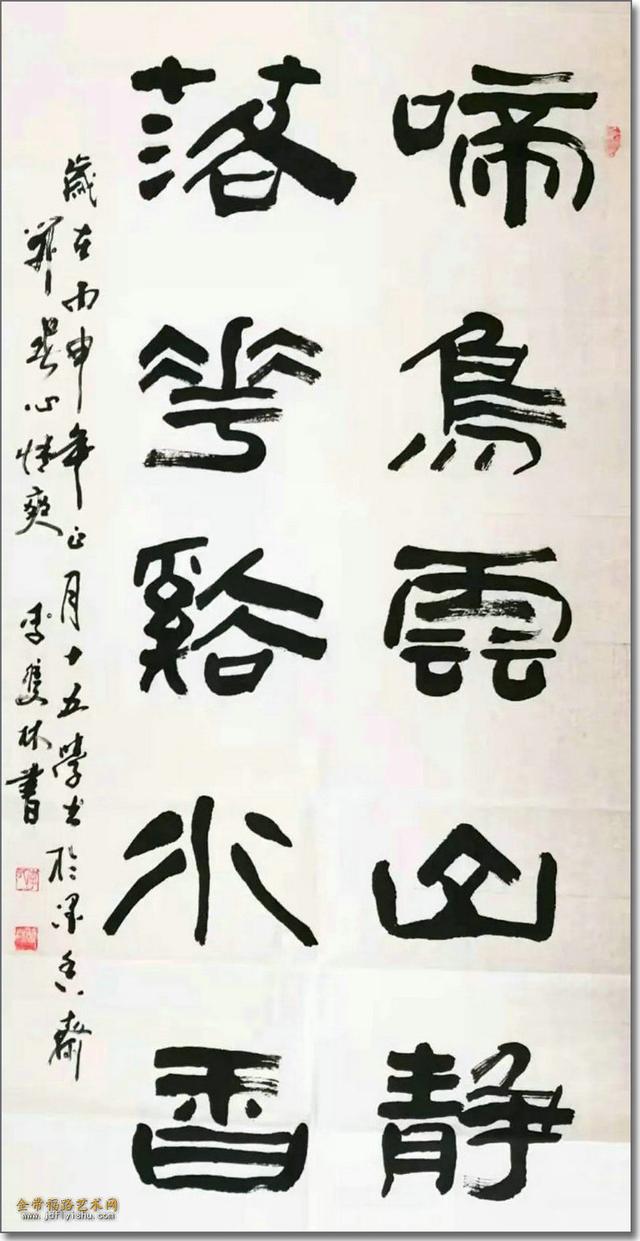 啼鳥雲山靜
落花谿水香
歲在丙申年正月十五學書於墨香齋
心情爽 李雙林書
金带福路艺术网
www.jdflyishu.com